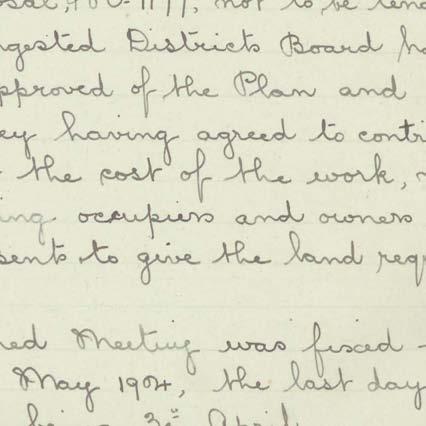 osal, 900-1177, not to be ten
ngested Districts Board ha
pproved of the Plan and
ey having agreed to contri
the cost of the work,
ing occupiers and owners
sents to give the land requ
ned Meeting was fixed
May 1904, the last day
being 3rd April